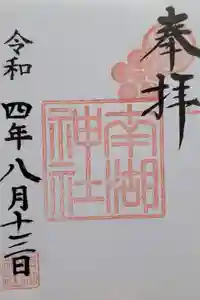 奉拝
南湖神社
令和四年八月十三日